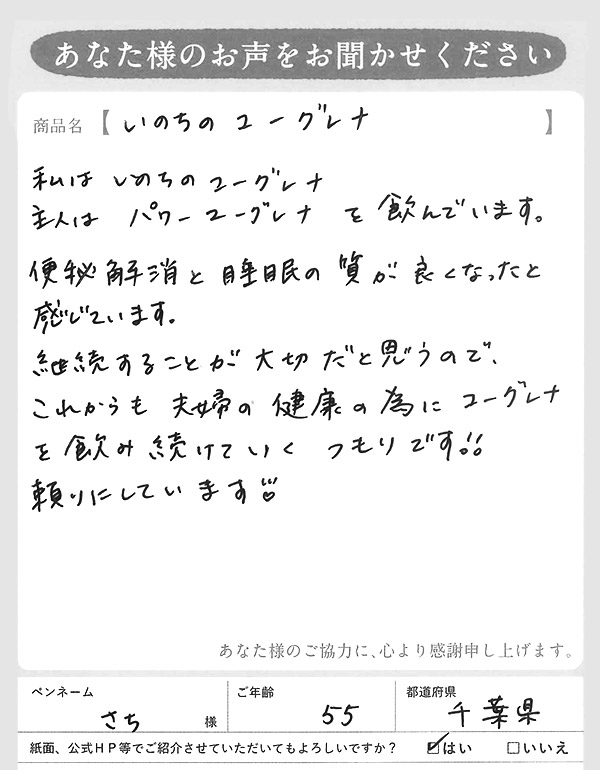 あなた様のお声をお聞かせください
商品名【いのちのユーグレナ】
私は いのちのユーグレナ
主人は パワーユーグレナ を飲んでいます。
便秘解消と睡眠の質が良くなったと
感じています。
継続することが大切だと思うので、
これからも 夫婦の健康の為にユーグレナ
を飲み続けていく つもりです!!
頼りにしています!!
あなた様のご協力に、心より感謝申し上げます。
ペンネーム さち 様 ご年齢 55 都道府県 千葉県
紙面、公式HP等でご紹介させていただいてもよろしいですか? ☑はい □いいえ